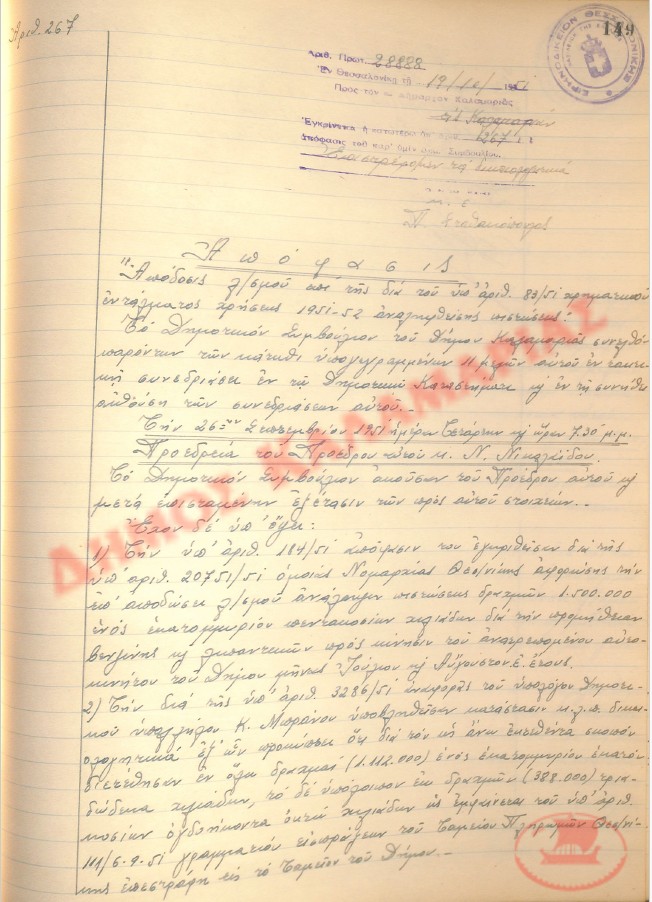 Αριθ. 267
149
ΕΙΡΗΝΟΔΙΚΕΙΟΝ ΘΕΣΣΑΛΟΝΙΚΗΣ
Αριθ. Πρωτ. 28888
Ἐν Θεσσαλονίκῃ τῇ 19/10/1951
Πρὸς τὸν κ. Δήμαρχον Καλαμαριᾶς
εἰς Καλαμαριάν
Ἐγκρίνεται ἡ κατωτέρω ὑπ' ἀριθ. 267/51
ἀπόφασις τοῦ
Ἐπιστρέφομεν τὰ δικαιολογητικά
Μ. Ε.
Ἀπόφασις
"Ἀπόδοσις λ/σμοῦ ἐπὶ τῆς διὰ τοῦ ὑπ' ἀριθ. 83/51 χρηματικοῦ
ἐντάλματος χρήσεως 1951-52 ἀναληφθείσης πιστώσεως".
Τὸ Δημοτικὸν Συμβούλιον τοῦ Δήμου Καλαμαριᾶς συνελθὸν
παρόντων τῶν κάτωθι ὑπογεγραμμένων 11 μελῶν αὐτοῦ ἐν τακτι-
κῇ συνεδριάσει ἐν τῷ Δημοτικῷ Καταστήματι κ ἐν τῇ συνήθει
αἰθούσῃ τῶν συνεδριάσεων αὐτοῦ.-
Τὴν 26ην Σεπτεμβρίου 1951 ἡμέραν Τετάρτην κ ὥραν 7.30 μ.μ.
Προεδρεία τοῦ Προέδρου αὐτοῦ κ. Ν. Νικολαΐδου.
Τὸ Δημοτικὸν Συμβούλιον ἀκούσαν τοῦ Προέδρου αὐτοῦ κ
μετὰ ἐπισταμένην ἐξέτασιν τῶν πρὸς αὐτοῦ στοιχείων.-
Ἔχον δὲ ὑπ' ὄψει:
1) Τὴν ὑπ' ἀριθ. 184/51 ἀπόφασιν του ἐγκριθεῖσαν διὰ τῆς
ὑπ' ἀριθ. 20751/51 ὁμοίας Νομαρχίας Θεσ/νίκης ἀφορώσης τὴν
ἐπ' ἀποδώσει λ/σμοῦ ἀνάληψιν πιστώσεως δραχμῶν 1.500.000
ἑνὸς ἑκατομμυρίου πεντακοσίων χιλιάδων διὰ τὴν προμήθειαν
βενζίνης κ λιπαντικῶν πρὸς κίνησιν τοῦ ἀνατρεπομένου αὐτο-
κινήτου τοῦ Δήμου μῆνας Ἰούλιον κ Αὔγουστον ἐ. ἔτους.
2) Τὴν διὰ τῆς ὑπ' ἀριθ. 3286/51 ἀναφορᾶς τοῦ ὑπολόγου Δημοτι-
κοῦ ὑπαλλήλου Κ. ὑποβληθεῖσαν κατάστασιν κ.λ.π. δικαι-
ολογητικά ἐξ ὧν προκύπτει ὅτι διὰ τὸν ὡς ἄνω σκοπὸν
διετέθησαν ἐν ὅλῳ δραχμαὶ (1.112.000) ἑνὸς ἑκατομμυρίου ἑκατὸν
δώδεκα χιλιάδων, τὸ δὲ ὑπόλοιπον ἐκ δραχμῶν (388.000) τρια-
κοσίων ὀγδοήκοντα ὀκτὼ χιλιάδων ὡς ἐμφαίνεται τοῦ ὑπ' ἀριθ.
111/6-9-51 γραμματίου εἰσπράξεως τοῦ Ταμείου Πληρωμῶν Θεσ/νί-
κης ἐπεστράφη εἰς τὸ Ταμεῖον τοῦ Δήμου.-
ΔΗΜΟΣ ΚΑΛΑΜΑΡΙΑΣ